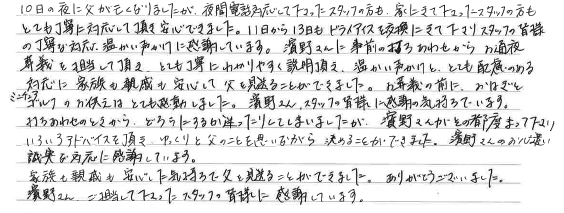 10日の夜に父が亡くなりましたが、夜間電話対応して下さったスタッフの方も、家にきて下さったスタッフの方も
とても丁寧に対応して頂き安心できました。11日から13日もドライアイスを交換にきて下さりスタッフの皆様
の丁寧な対応、温かい声かけに感謝しています。濱野さんに事前の打ち合わせから お通夜
葬儀を担当して頂き、とても丁寧にわかりやすく説明頂き、温かい声かけと、とても配慮のある
対応に 家族も親戚も安心して父を見送ることができました。お葬儀の前に、おはぎと
ミニチュア
ゴルフのお供えはとても感動しました。濱野さん、スタッフの皆様に感謝の気持ちです。
打ち合わせのときから、どちらにするか迷ったりしてしまいましたが、濱野さんがその都度待って下さり
いろいろアドバイスを頂き、ゆっくりと父のことを思いながら 決めることができました。濱野さんのお心遣い
誠実な対応に感謝しています。
家族も親戚も 安心した気持ちで父を見送ることができました。ありがとうございました。
濱野さん、ご担当して下さったスタッフの皆様に 感謝しています。